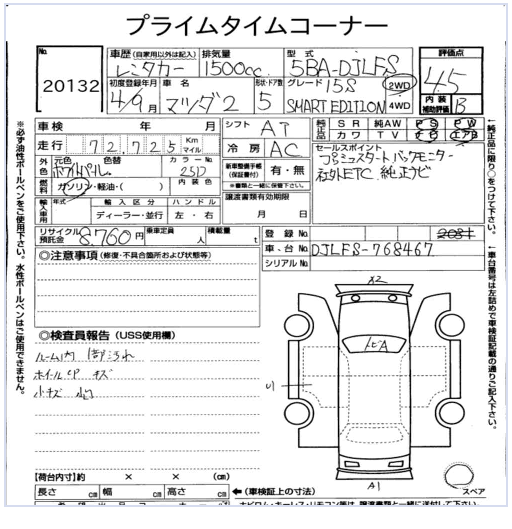 プライムタイムコーナー
No. 20132
車歴 (自家用以外は記入) レンタカー
排気量 1500cc
型式 5BA-DJLFS
評価点 4.5
初度登録年月 4/9月
車名 マツダ2
形状・ドア数 5
グレード 15S SMART EDITION
2WD
4WD
内装 補助評価 B
車検 年 月
走行 72,725 Km マイル
シフト AT
冷房 AC
純正品 SR 純AW PS PW
カワ TV ナビ エアB
外色 元色 色替 カラーNo. 25D
内装色
燃料 ガソリン・軽油・( )
新車整備手帳 (保証書付) 有・無
※書類と一緒に保管下さい。
セールスポイント
プッシュスタート バックモニター
社外ETC 純正ナビ
輸入車用 年式 輸入区分 ハンドル
ディーラー・並行 左・右
譲渡書類有効期限
月 日
リサイクル預託金 8,760円
乗車定員 人
積載量 t
登録No.
車台No. DJLFS-768467
シリアルNo.
◎注意事項 (修復・不具合箇所および状態等)
◎検査員報告 (USS使用欄)
ルーム内
ホイールCP キズ
小キズ 凹
X2
トビA
U1
A1
スペア
【荷台内寸】約 × × (cm)
長さ cm 幅 cm 高さ cm
←(車検証上の寸法)
※必ず油性ボールペンをご使用下さい。水性ボールペンはご使用できません。
←純正品に限り○をつけて下さい。
←車台番号は左詰めで車検証記載の通りご記入下さい。